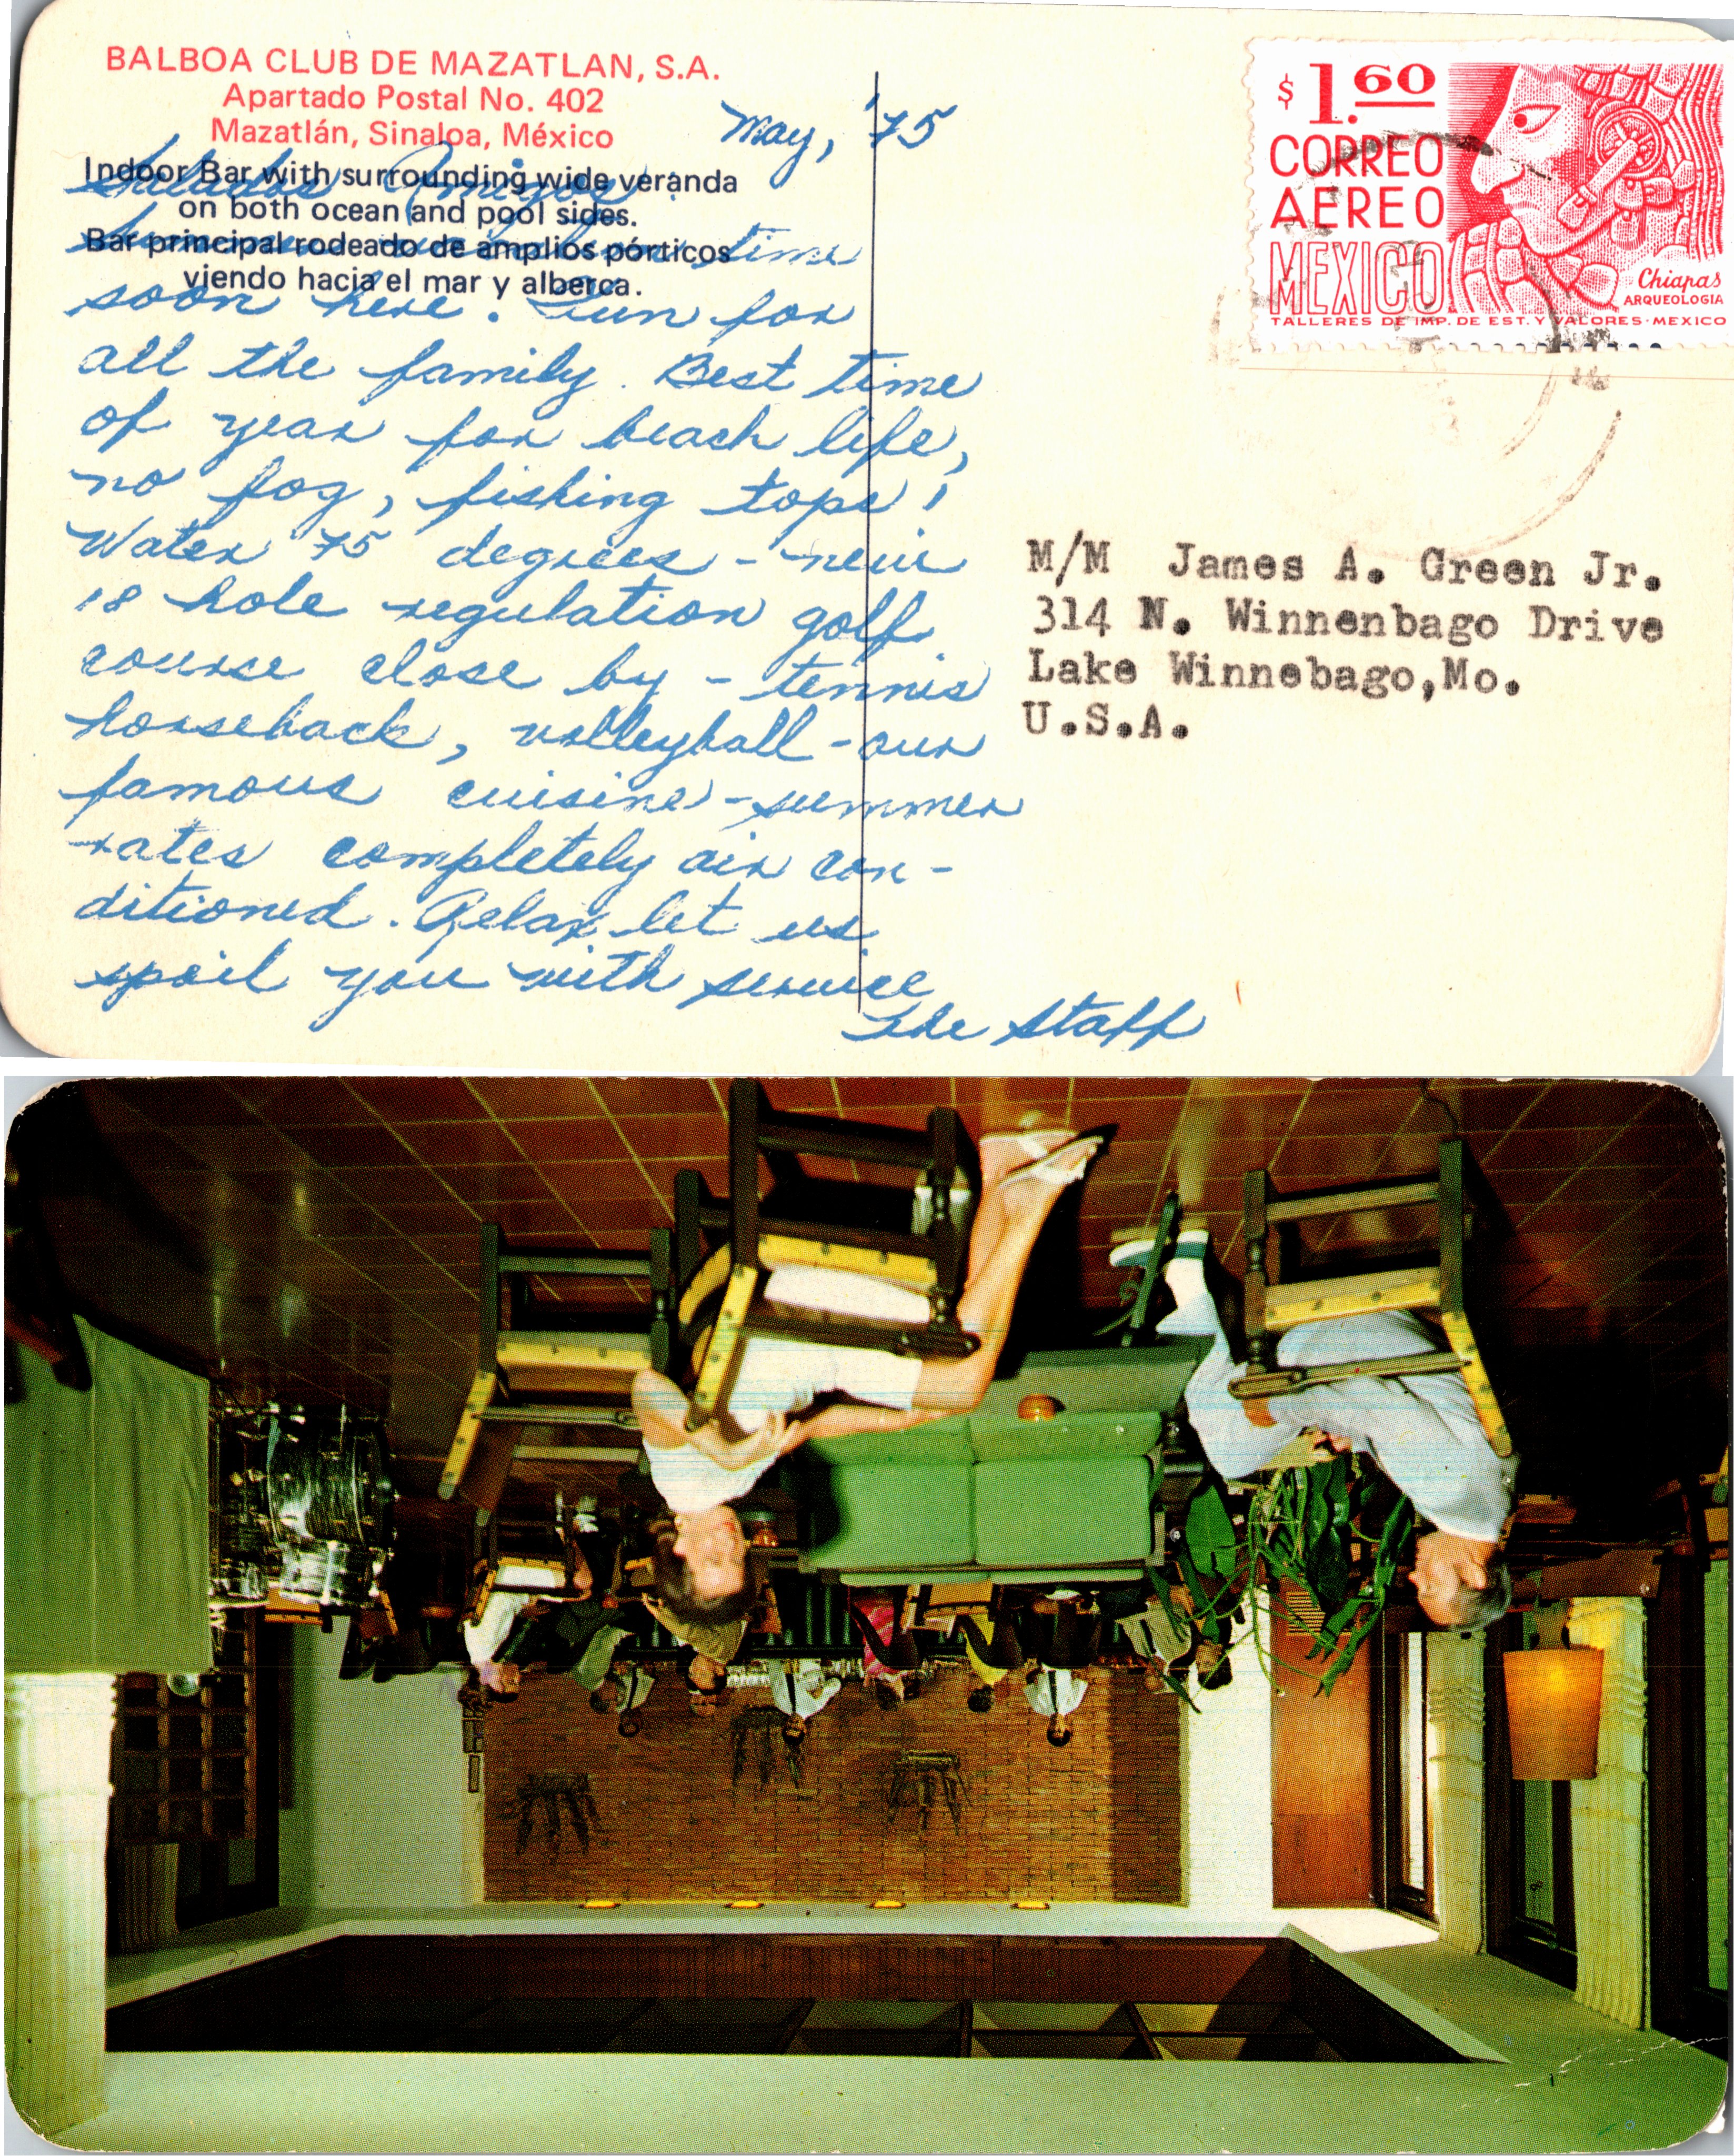 BALBOA CLUB DE MAZATLAN, S.A.
Apartado Postal No. 402
Mazatlán, Sinaloa, México
May, '75
Indoor Bar with surrounding wide veranda
on both ocean and pool sides.
Bar principal rodeado de amplios pórticos
viendo hacia el mar y alberca.
Saludos Amigos
time
soon here. Fun for
all the family. Best time
of year for beach life,
no fog, fishing tops!
Water 75 degrees - new
18 hole regulation golf
course close by - tennis
horseback, volleyball - our
famous cuisine - summer
rates completely air con-
ditioned. Relax let us
spoil you with service
The Staff
$1.60
CORREO
AEREO
MEXICO
Chiapas
ARQUEOLOGIA
TALLERES DE IMP. DE EST. Y VALORES · MEXICO
M/M James A. Green Jr.
314 N. Winnenbago Drive
Lake Winnebago,Mo.
U.S.A.